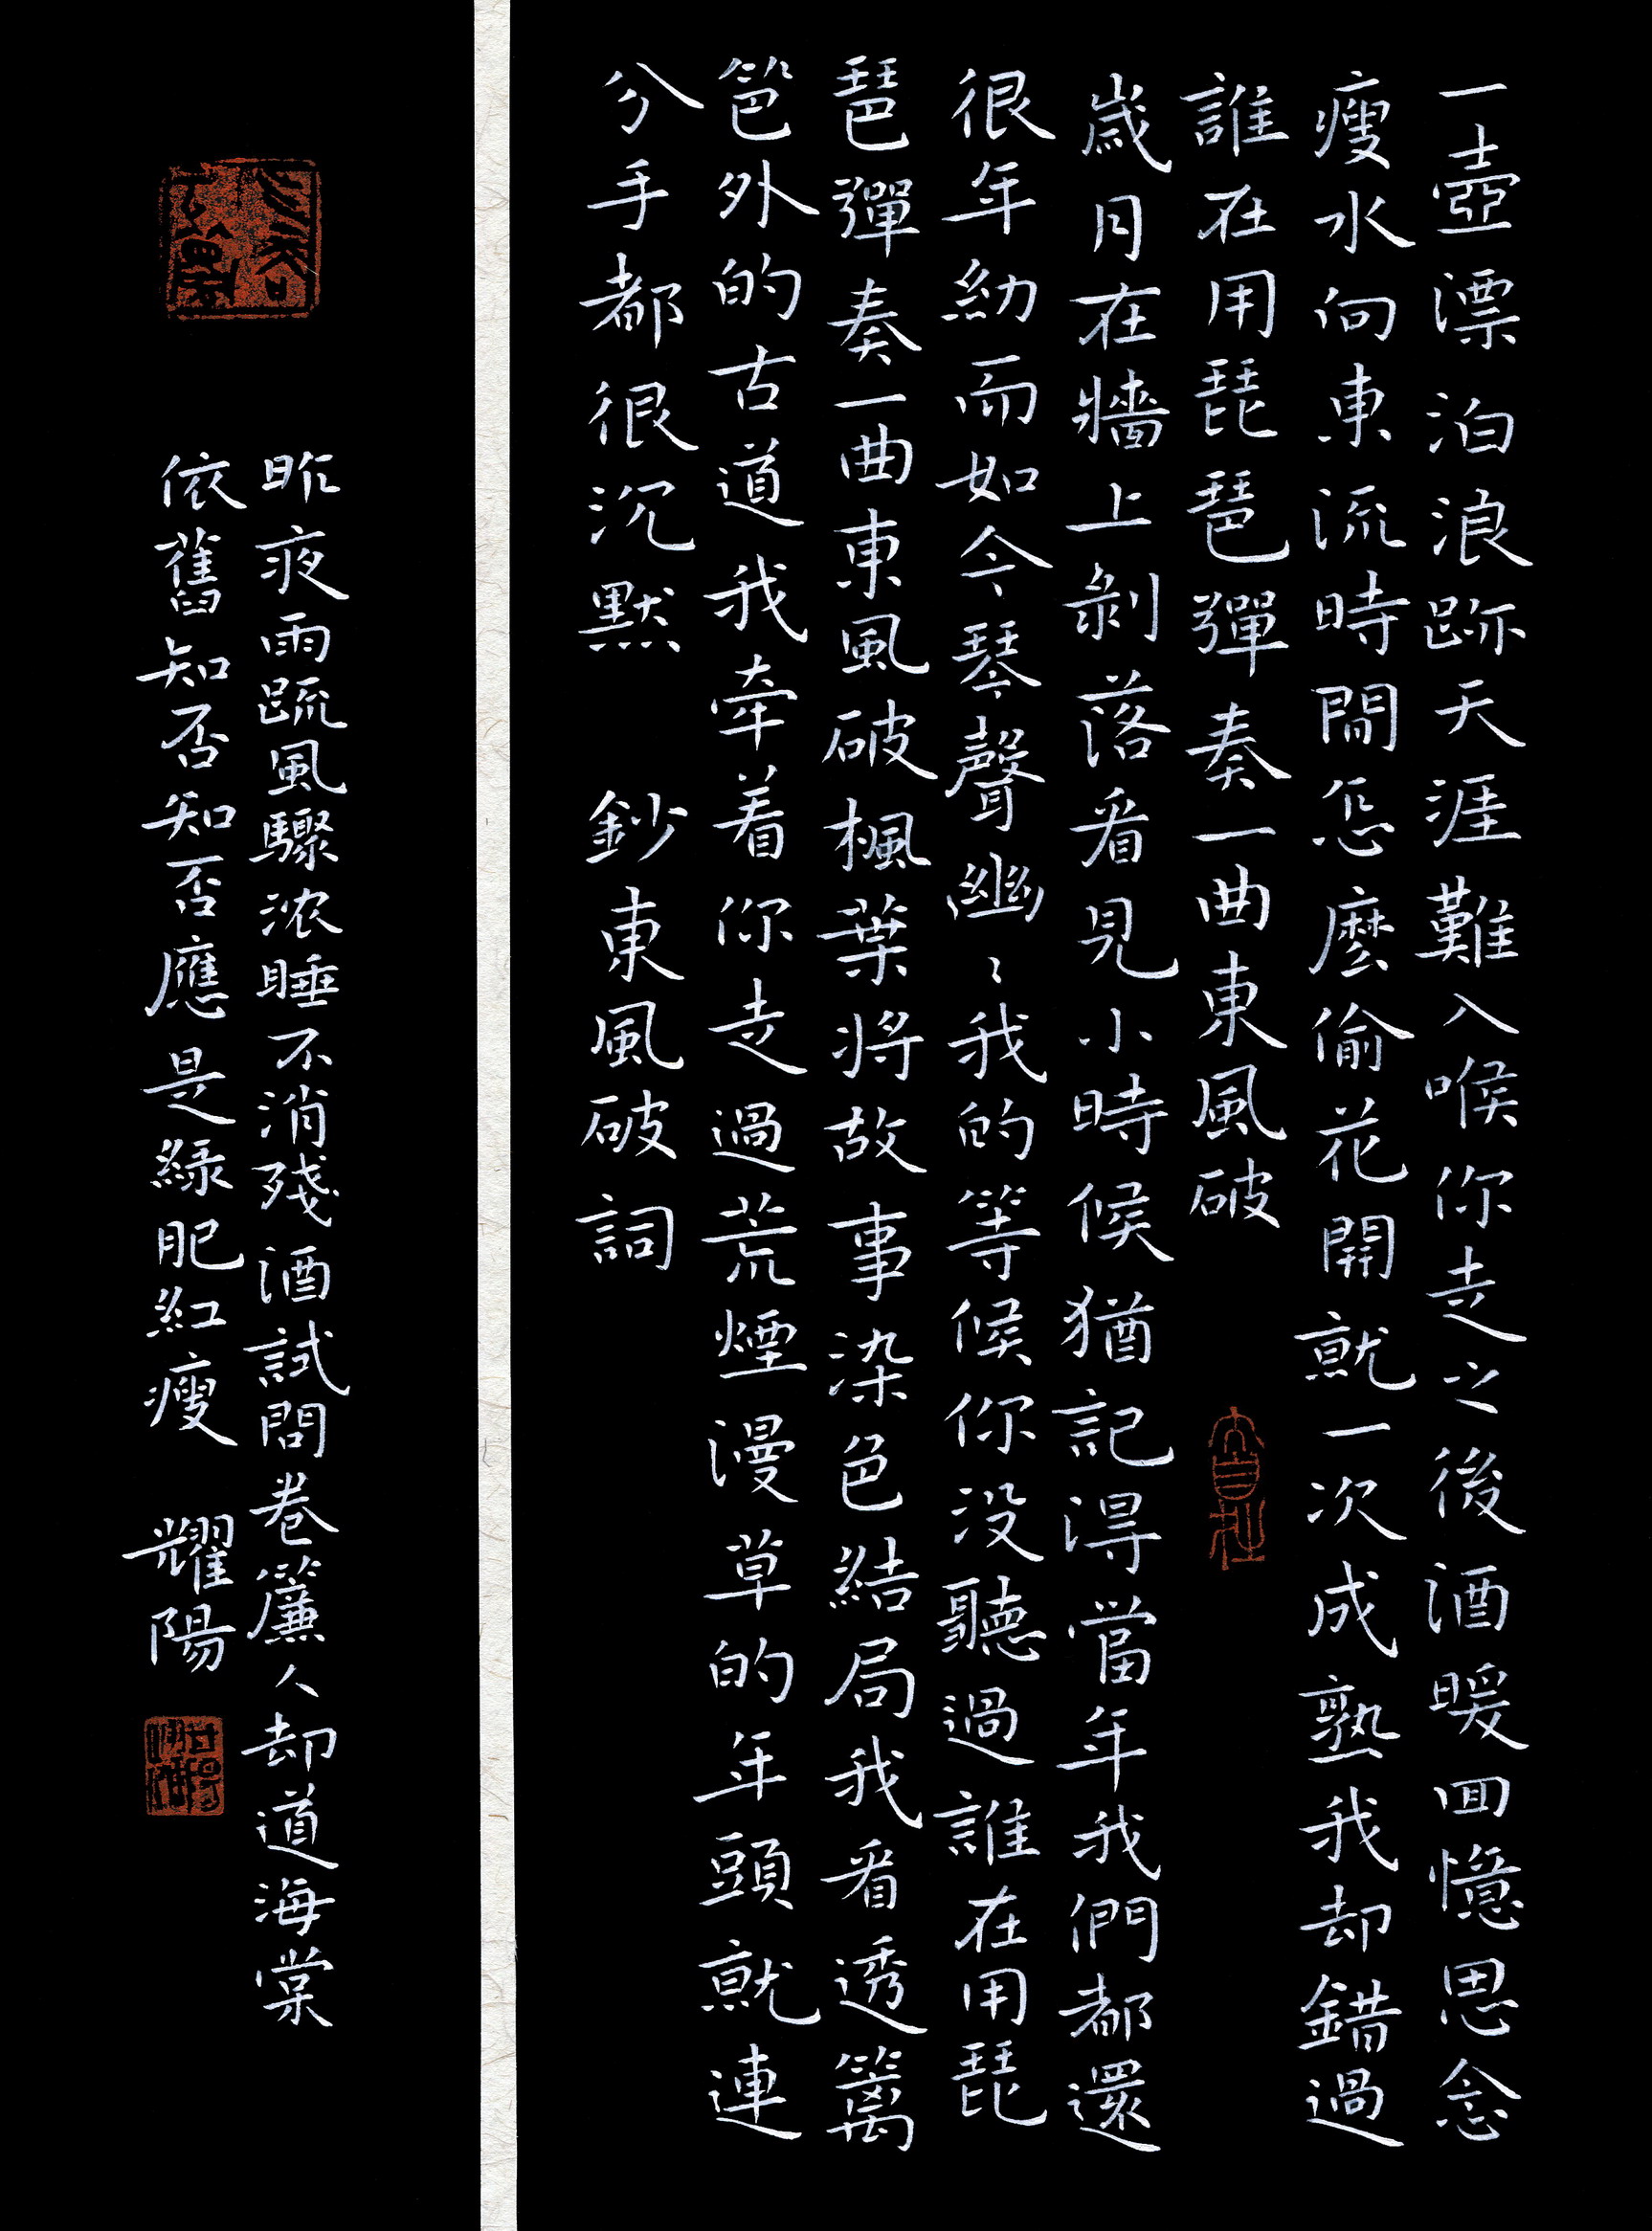 一壺漂泊浪跡天涯難入喉你走之後酒暖回憶思念
瘦水向東流時間怎麼偷花開就一次成熟我却錯過
誰在用琵琶彈奏一曲東風破
歲月在牆上剝落看見小時候猶記得當年我們都還
很年幼而如今琴聲幽〻我的等候你没聽過誰在用琵
琶彈奏一曲東風破楓葉將故事染色結局我看透籬
笆外的古道我牽着你走過荒煙漫草的年頭就連
分手都很沉默 鈔東風破詞
昨夜雨疏風驟浓睡不消殘酒試問卷簾人却道海棠
依舊知否知否應是綠肥紅瘦 耀陽